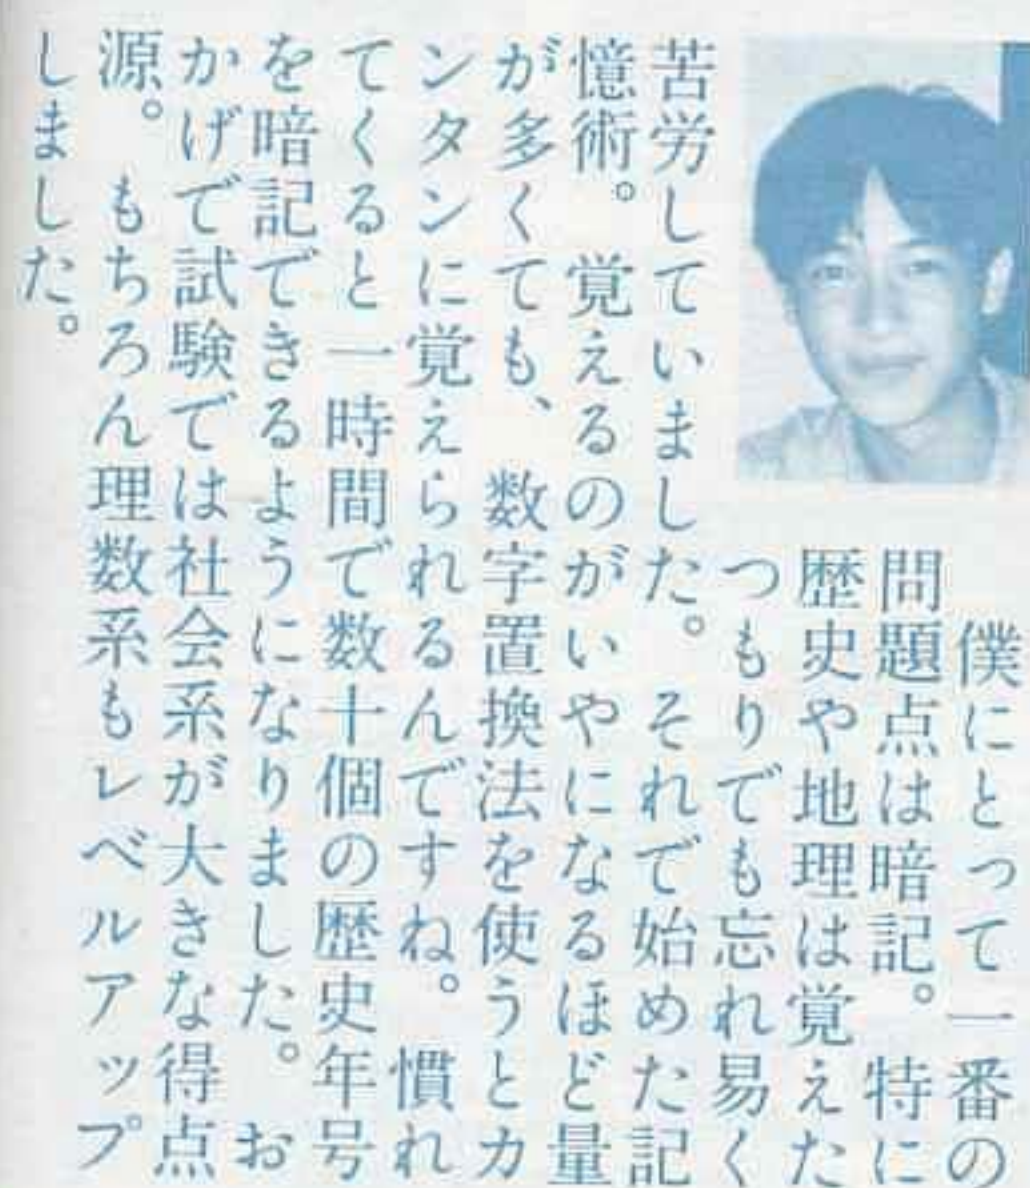 僕にとって一番の
問題点は暗記。特に
歴史や地理は覚えた
つもりでも忘れ易く
苦労していました。それで始めた記
憶術。覚えるのがいやになるほど量
が多くても、数字置換法を使うとカ
ンタンに覚えられるんですね。慣れ
てくると一時間で数十個の歴史年号
を暗記できるようになりました。お
かげで試験では社会系が大きな得点
源。もちろん理数系もレベルアップ
しました。